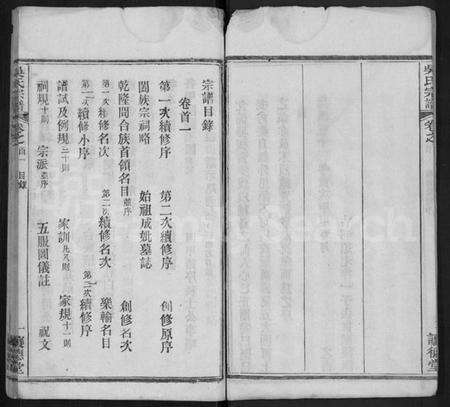 吳氏宗譜
卷之
宗譜目錄
卷首一
第一次續修序 第二次續修序 創修原序
闔族宗祠略 始祖成妣墓誌
乾隆間合族首領名目並序 創修名次
第一次續修名次 第二次續修名次 樂輸名目
第一次續修小序 第二次續修序
譜試及例規三十則 家訓九則 家規十一則
祠規十則 宗派並序 五服圖儀註 祝文
吳氏宗譜
卷之首一 目錄
一 讓德堂
讓德堂